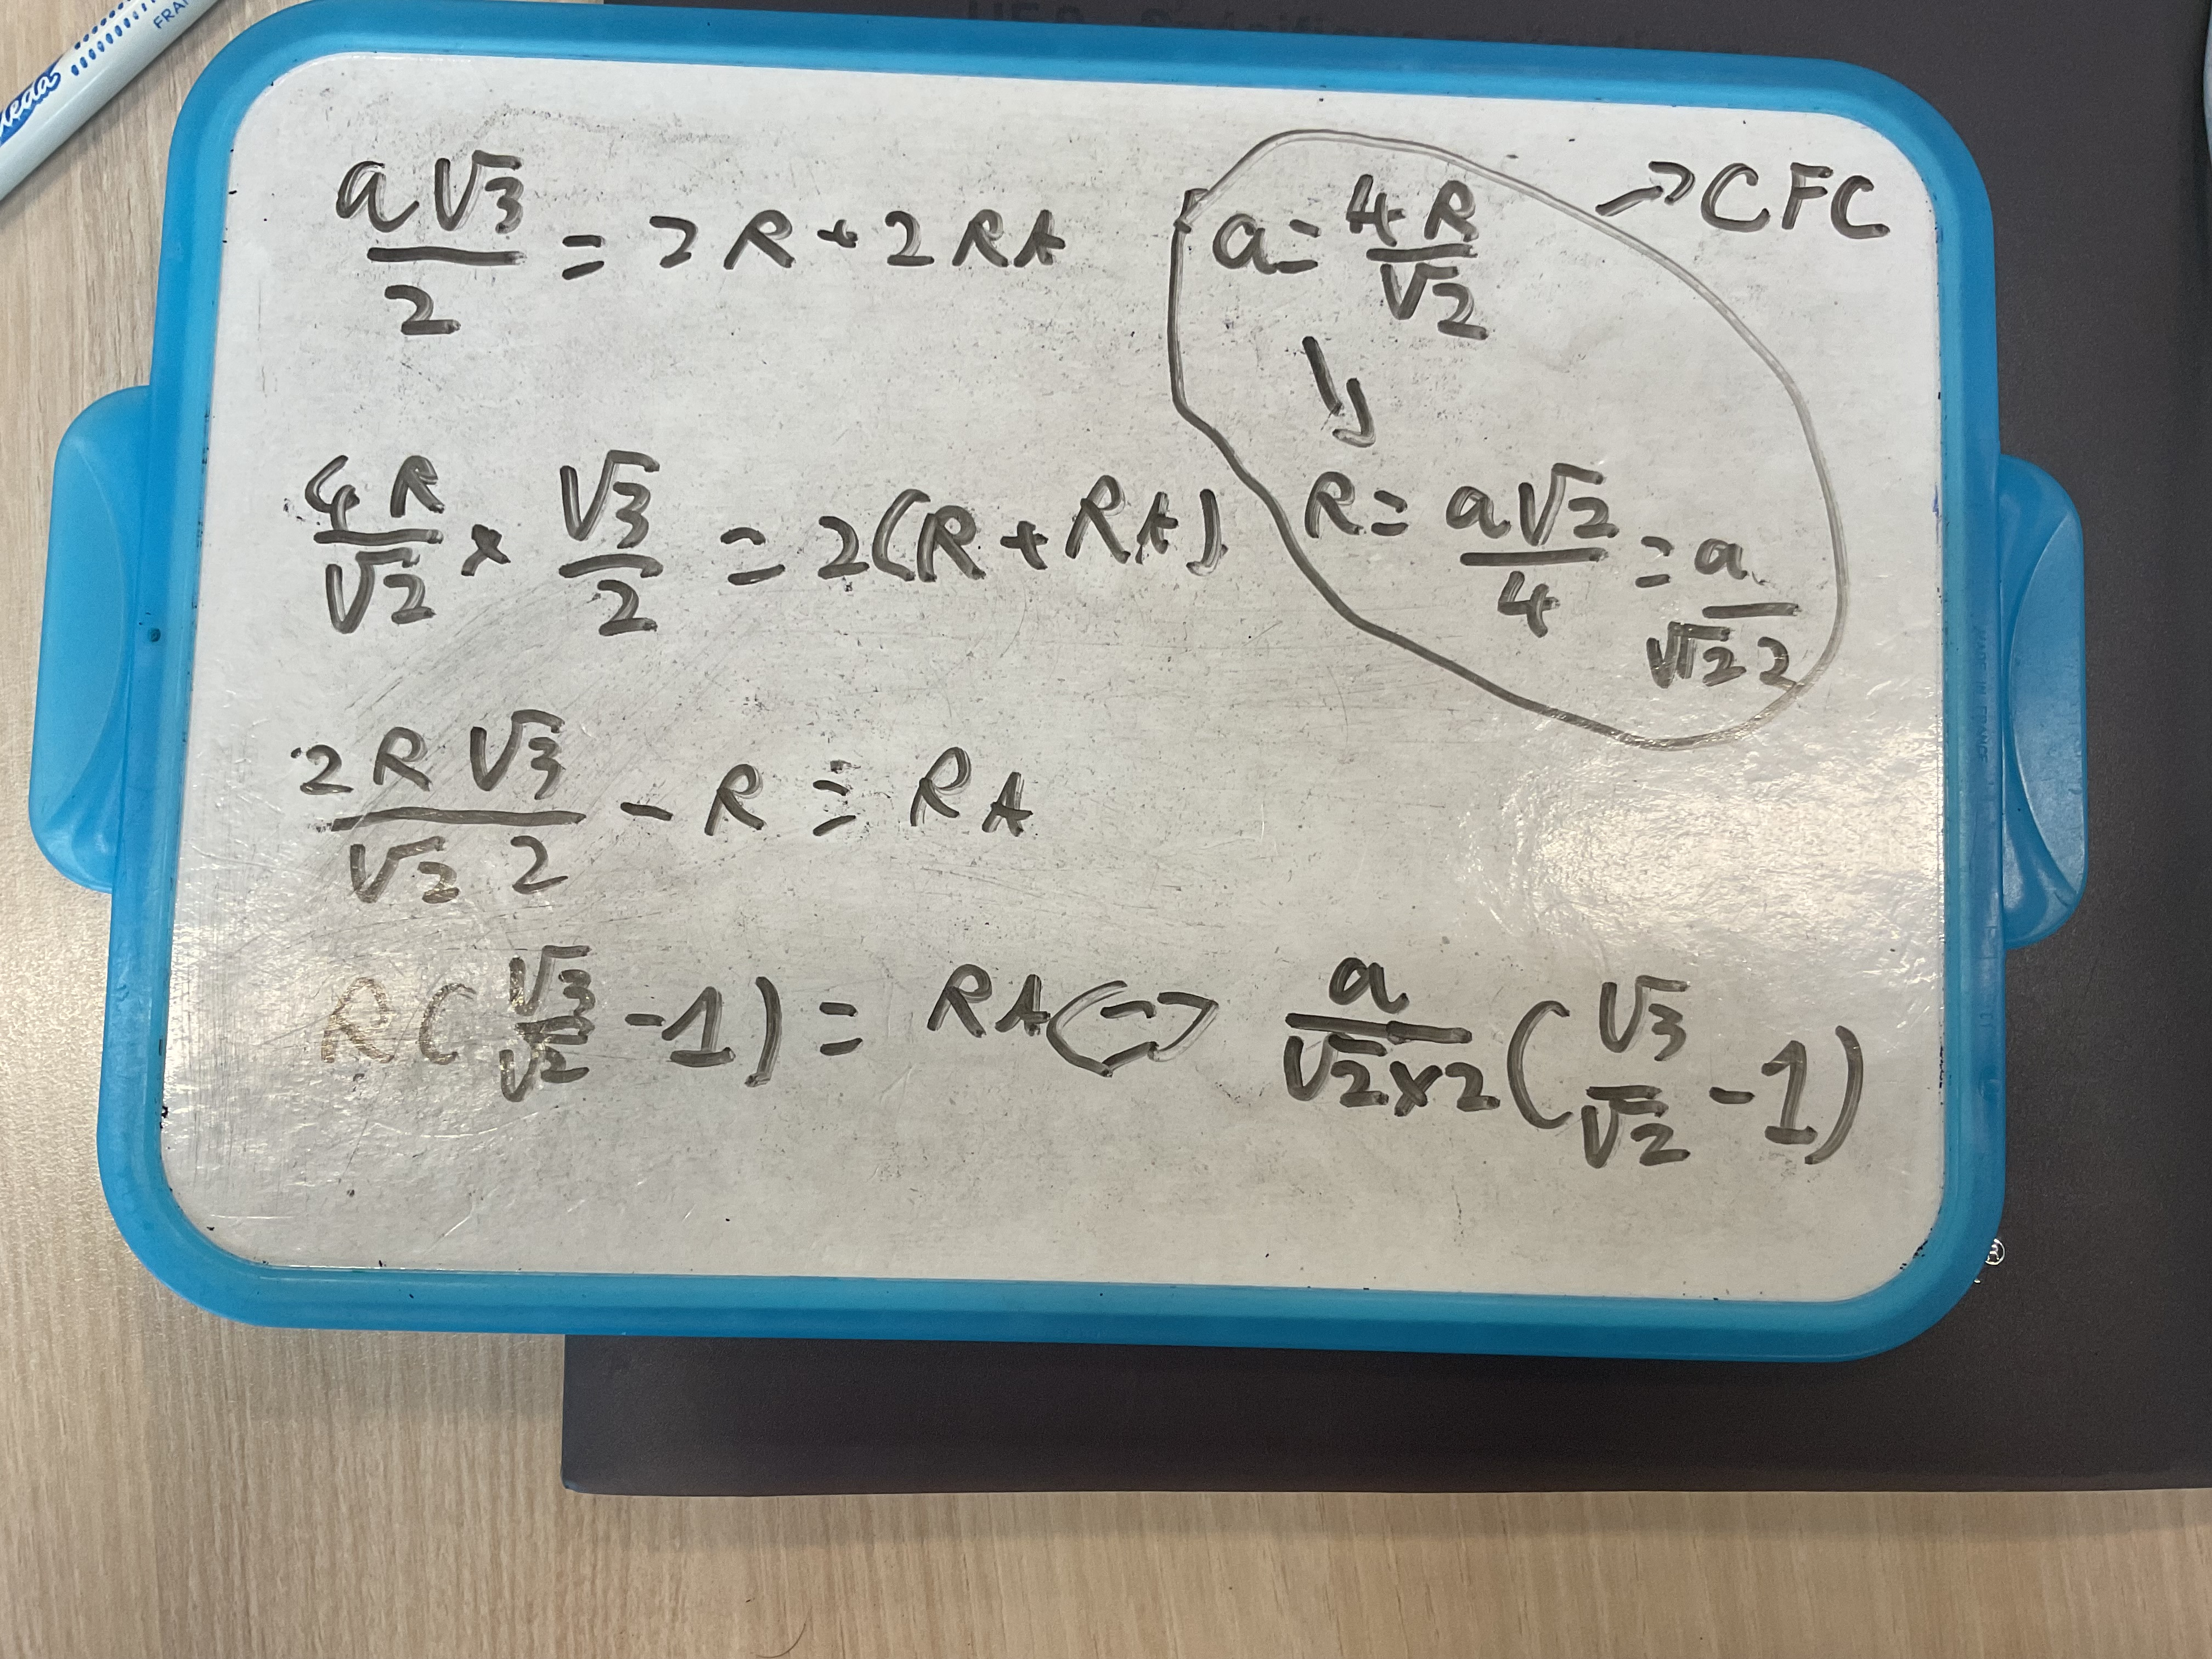 a√3/2 = 2R + 2RA
a = 4R/√2 → CFC
↓
R = a√2/4 = a/√2 2
4R/√2 × √3/2 = 2(R + RA)
2R√3/√2 2 - R = RA
R(√3/√2 - 1) = RA ⇔ a/√2×2 (√3/√2 - 1)